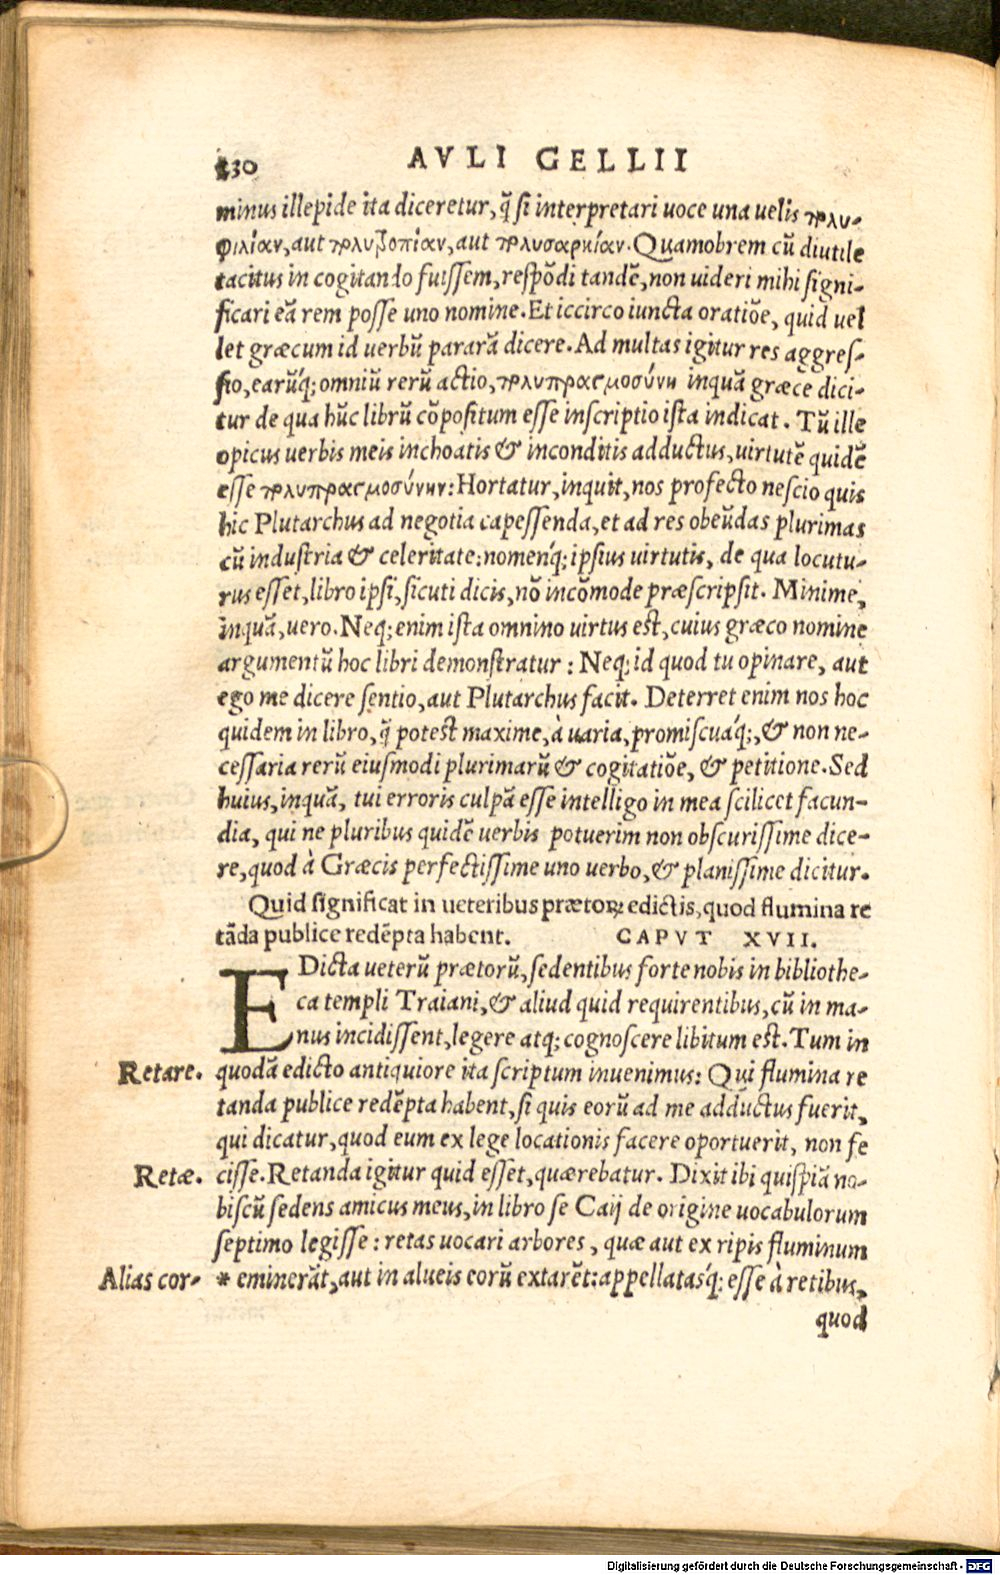 230 AVLI GELLII
minus illepide ita diceretur, q̃ si interpretari uoce una uelis πολυ-
φιλίαν, aut πολυτροπίαν, aut πολυσαρκίαν. Quamobrem cũ diutile
tacitus in cogitando fuissem, respõdi tandẽ, non uideri mihi signi-
ficari eã rem posse uno nomine. Et iccirco iuncta oratiõe, quid uel
let græcum id uerbũ pararã dicere. Ad multas igitur res aggres-
sio, earũq́; omniũ rerũ actio, πολυπραγμοσύνη inquã græce dici-
tur de qua hũc librũ cõpositum esse inscriptio ista indicat. Tũ ille
opicus uerbis meis inchoatis & inconditis adductus, uirtutẽ quidẽ
esse πολυπραγμοσύνην: Hortatur, inquit, nos profecto nescio quis
hic Plutarchus ad negotia capessenda, et ad res obeũdas plurimas
cũ industria & celeritate: nomenq́; ipsius uirtutis, de qua locutu-
rus esset, libro ipsi, sicuti dicis, nõ incõmode præscripsit. Minime,
inquã, uero. Neq; enim ista omnino uirtus est, cuius græco nomine
argumentũ hoc libri demonstratur: Neq; id quod tu opinare, aut
ego me dicere sentio, aut Plutarchus facit. Deterret enim nos hoc
quidem in libro, q̃ potest maxime, à uaria, promiscuaq́;, & non ne-
cessaria rerũ eiusmodi plurimarũ & cogitatiõe, & petitione. Sed
huius, inquã, tui erroris culpã esse intelligo in mea scilicet facun-
dia, qui ne pluribus quidẽ uerbis potuerim non obscurissime dice-
re, quod à Græcis perfectissime uno uerbo, & planissime dicitur.
Quid significat in ueteribus prætoꝝ edictis, quod flumina re
tãda publice redẽpta habent. CAPVT XVII.
EDicta ueterũ prætorũ, sedentibus forte nobis in bibliothe-
ca templi Traiani, & aliud quid requirentibus, cũ in ma-
nus incidissent, legere atq; cognoscere libitum est. Tum in
Retare. quodã edicto antiquiore ita scriptum inuenimus: Qui flumina re
tanda publice redẽpta habent, si quis eorũ ad me adductus fuerit,
qui dicatur, quod eum ex lege locationis facere oportuerit, non fe
Retæ. cisse. Retanda igitur quid esset, quærebatur. Dixit ibi quispiã no-
biscũ sedens amicus meus, in libro se Caij de origine uocabulorum
septimo legisse: retas uocari arbores, quæ aut ex ripis fluminum
Alias cor- * eminerãt, aut in alueis eorũ extarẽt: appellatasq́; esse à retibus,
quod
Digitalisierung gefördert durch die Deutsche Forschungsgemeinschaft - DFG